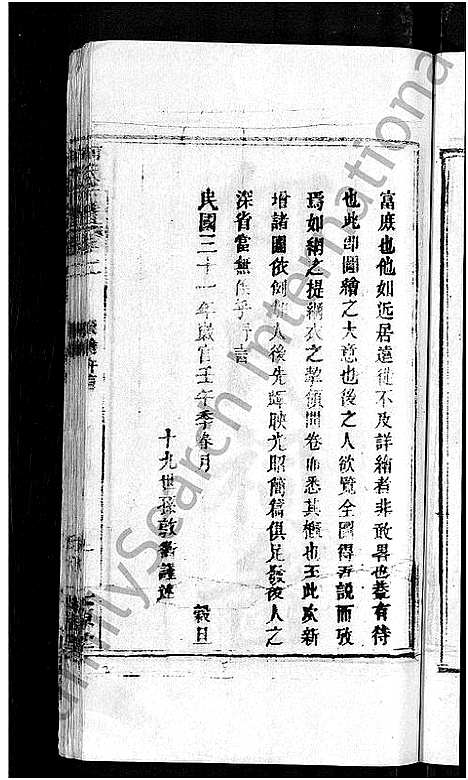 富庶也他如近居遠徙不及詳繪者非敢畧也蓋有待
也此卽圖繪之大意也後之人欲覽全圖得吾說而攷
焉如網之提綱衣之挈領開卷而悉其概也至此次新
增諸圖依倒 人後先輝映光照簡篇俱足發後人之
深省當無 乎 言
民國三十一年歲官壬午季春月 穀旦
十九世孫敦 謹述
FamilySearch International